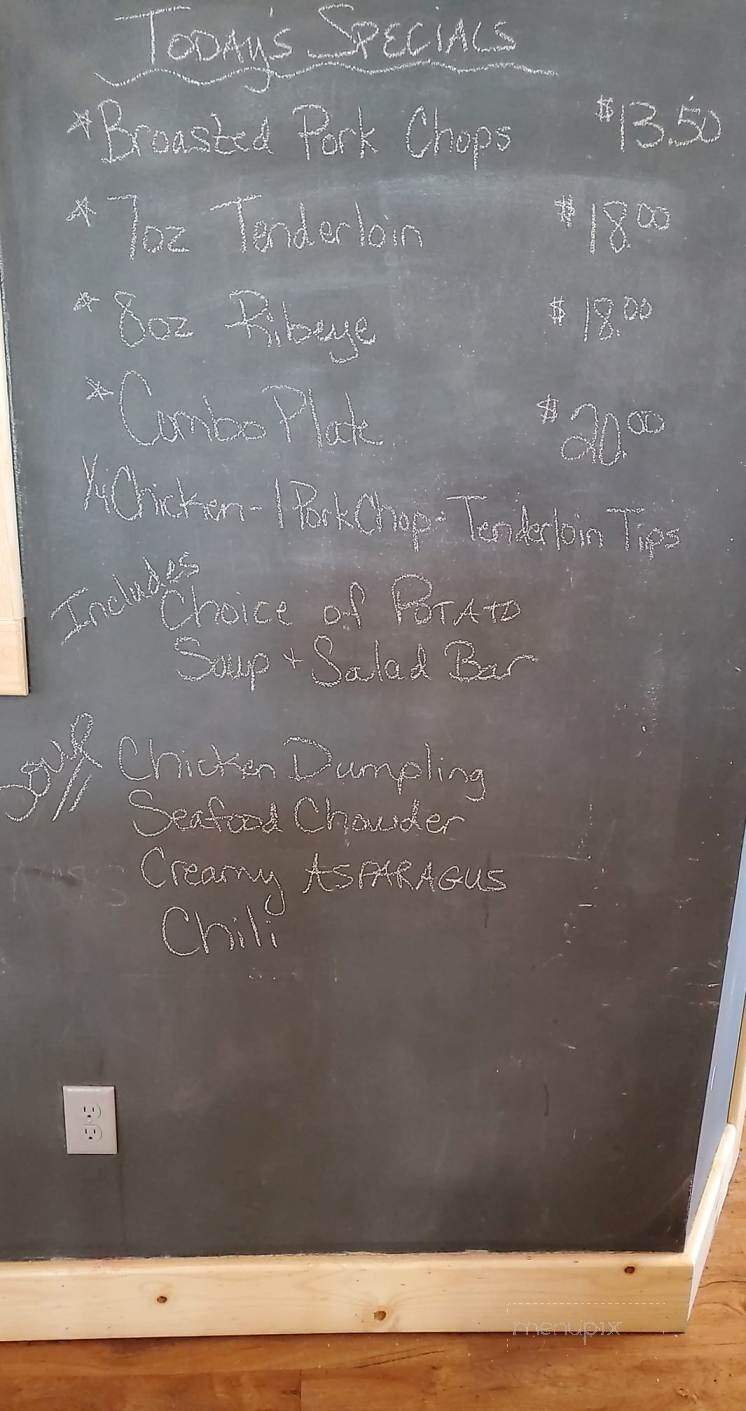 TODAY'S SPECIALS
*Broasted Pork Chops $13.50
*7oz Tenderloin $18.00
*8oz Ribeye $18.00
*Combo Plate $20.00
1/4 Chicken-1 Pork Chop-Tenderloin Tips
Includes Choice of POTATO
Soup + Salad Bar
Soup Chicken Dumpling
Seafood Chowder
Creamy ASPARAGUS
Chili
menupix